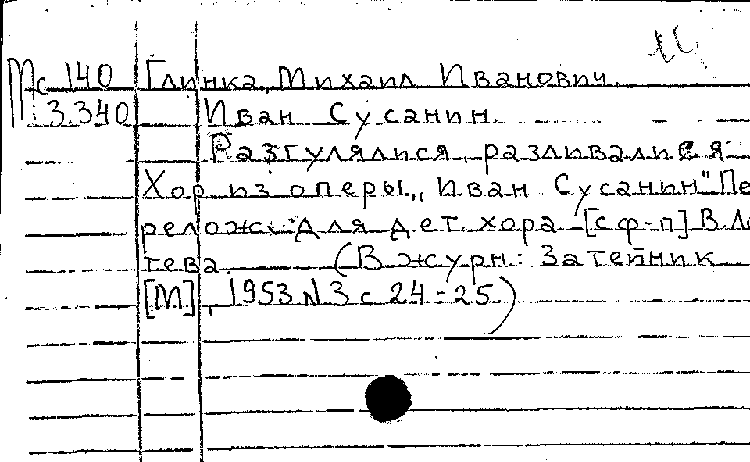 Мс 140 Глинка, Михаил Иванович.
3.340 Иван Сусанин.
Разгулялися, разливалися
Хор из оперы „Иван Сусанин" Пе
релож. для дет. хора [с ф-п] В. Ло
тева. (В журн.: Затейник
[М], 1953 N 3 с 24-25)